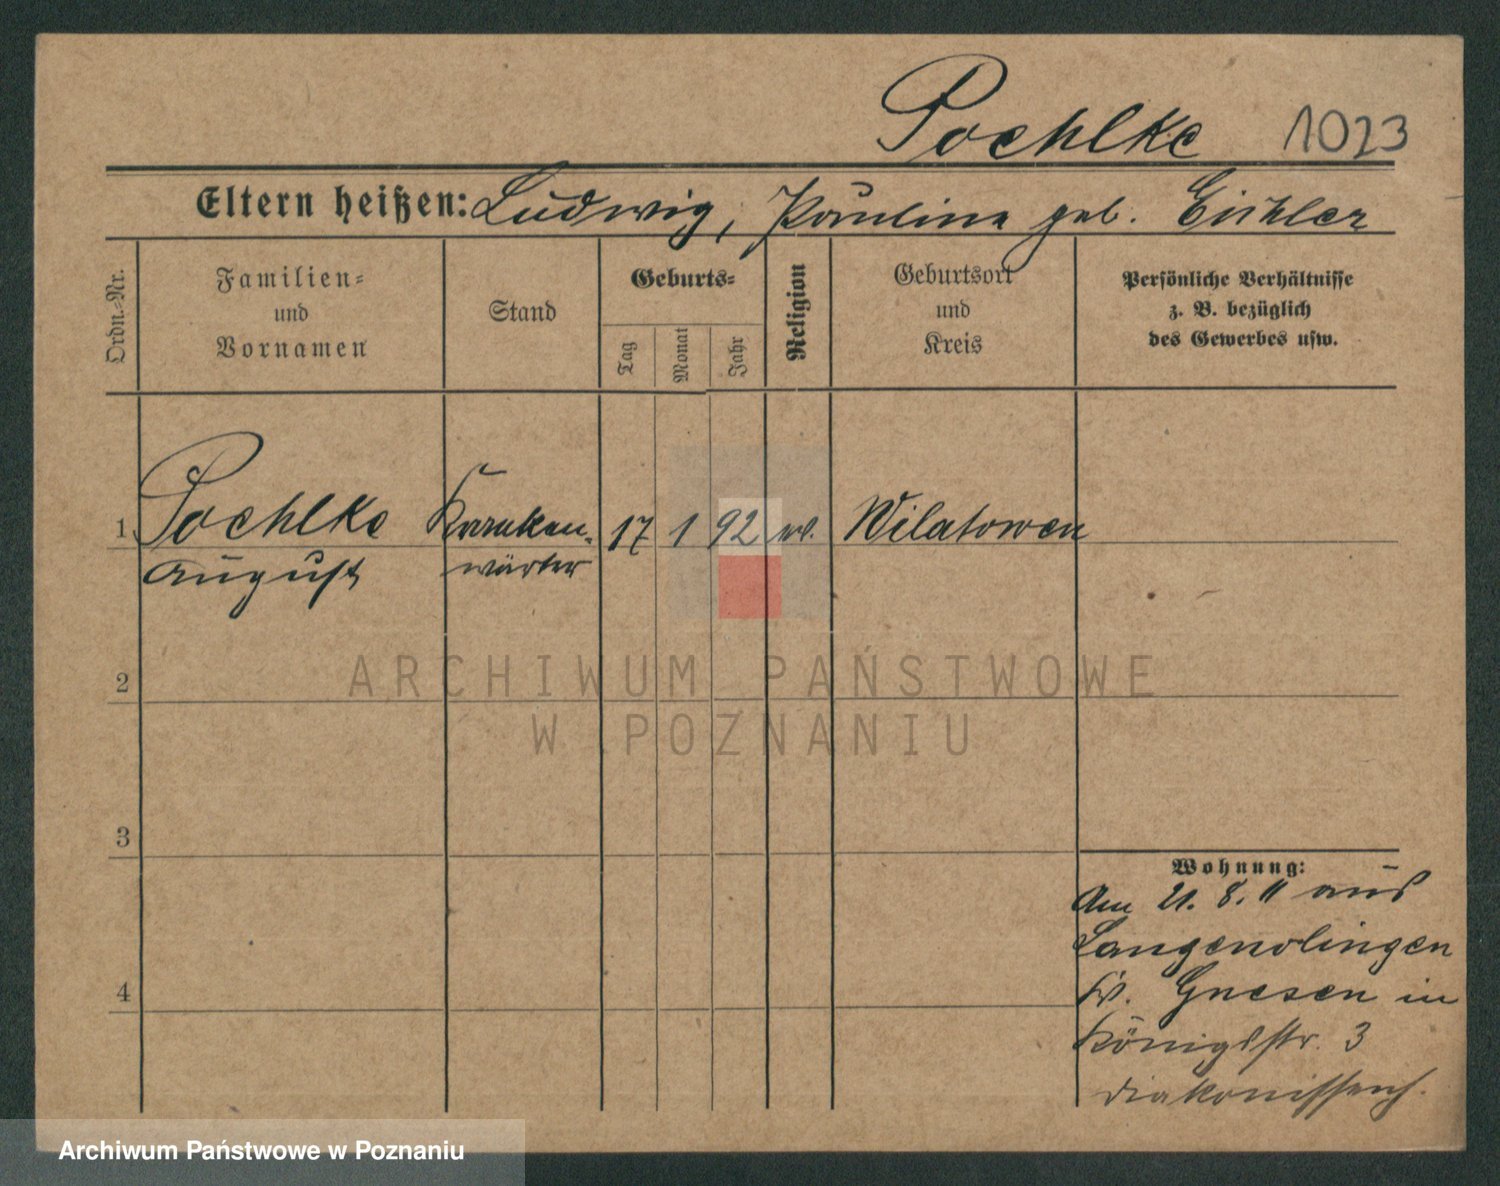 Poehlke 1023
Eltern heißen: Ludwig, Pauline geb. Eichler
Ordn.-Nr.
Familien-
und
Vornamen
Stand
Geburts-
Tag
Monat
Jahr
Religion
Geburtsort
und
Kreis
Persönliche Verhältnisse
z. B. bezüglich
des Gewerbes usw.
1 Poehlke Kranken- 17 1 92 ev. Wilatowen
August wärter
2
ARCHIWUM PAŃSTWOWE
W POZNANIU
3
4
Wohnung:
Am 21. 8. 11 aus
Langenolingen
Kr. Gnesen in
Königsstr. 3
Diakonissenh.
Archiwum Państwowe w Poznaniu